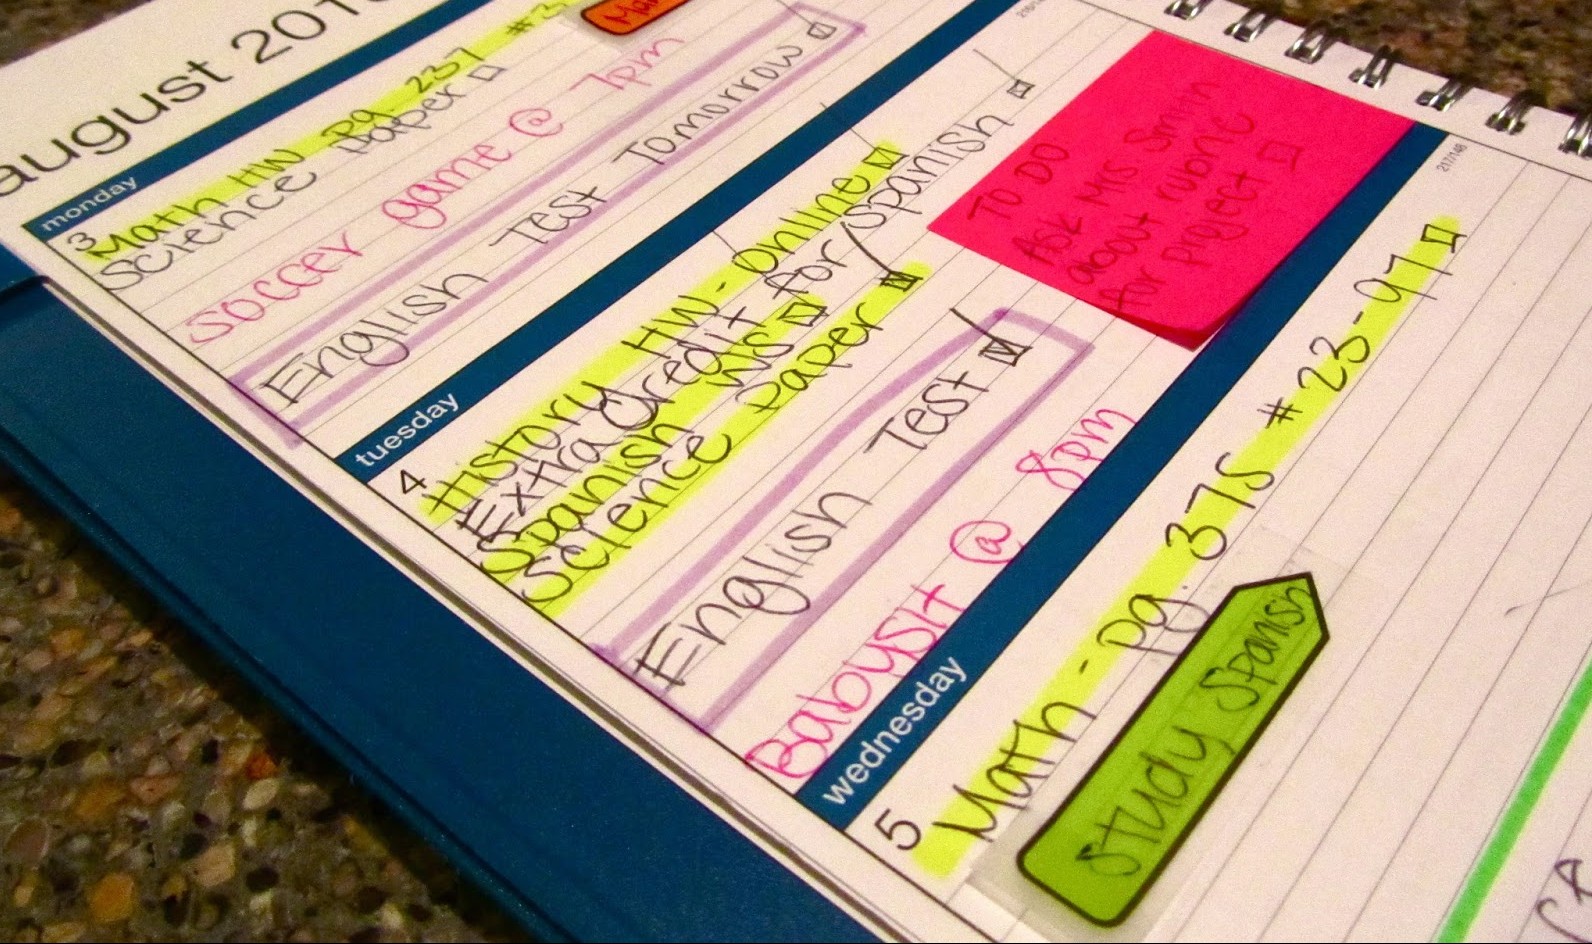 august 201
monday
3
Math HW pg. 237 #3
Science Paper
soccer game @ 7pm
English Test Tomorrow
tuesday
4
History HW- Online
Extra Credit for Spanish
Spanish WS
Science Paper
English Test
Babysit @ 8pm
TO DO
Ask Mrs Smith
about rubric
for project
wednesday
217/148
5
Math - pg. 375 # 23-97
Study Spanish